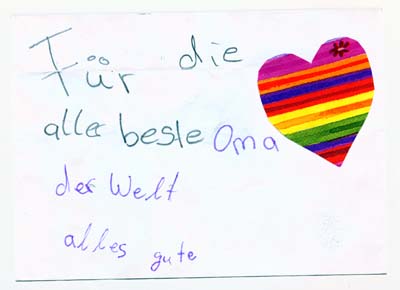 Für die
aller beste Oma
der Welt
alles gute